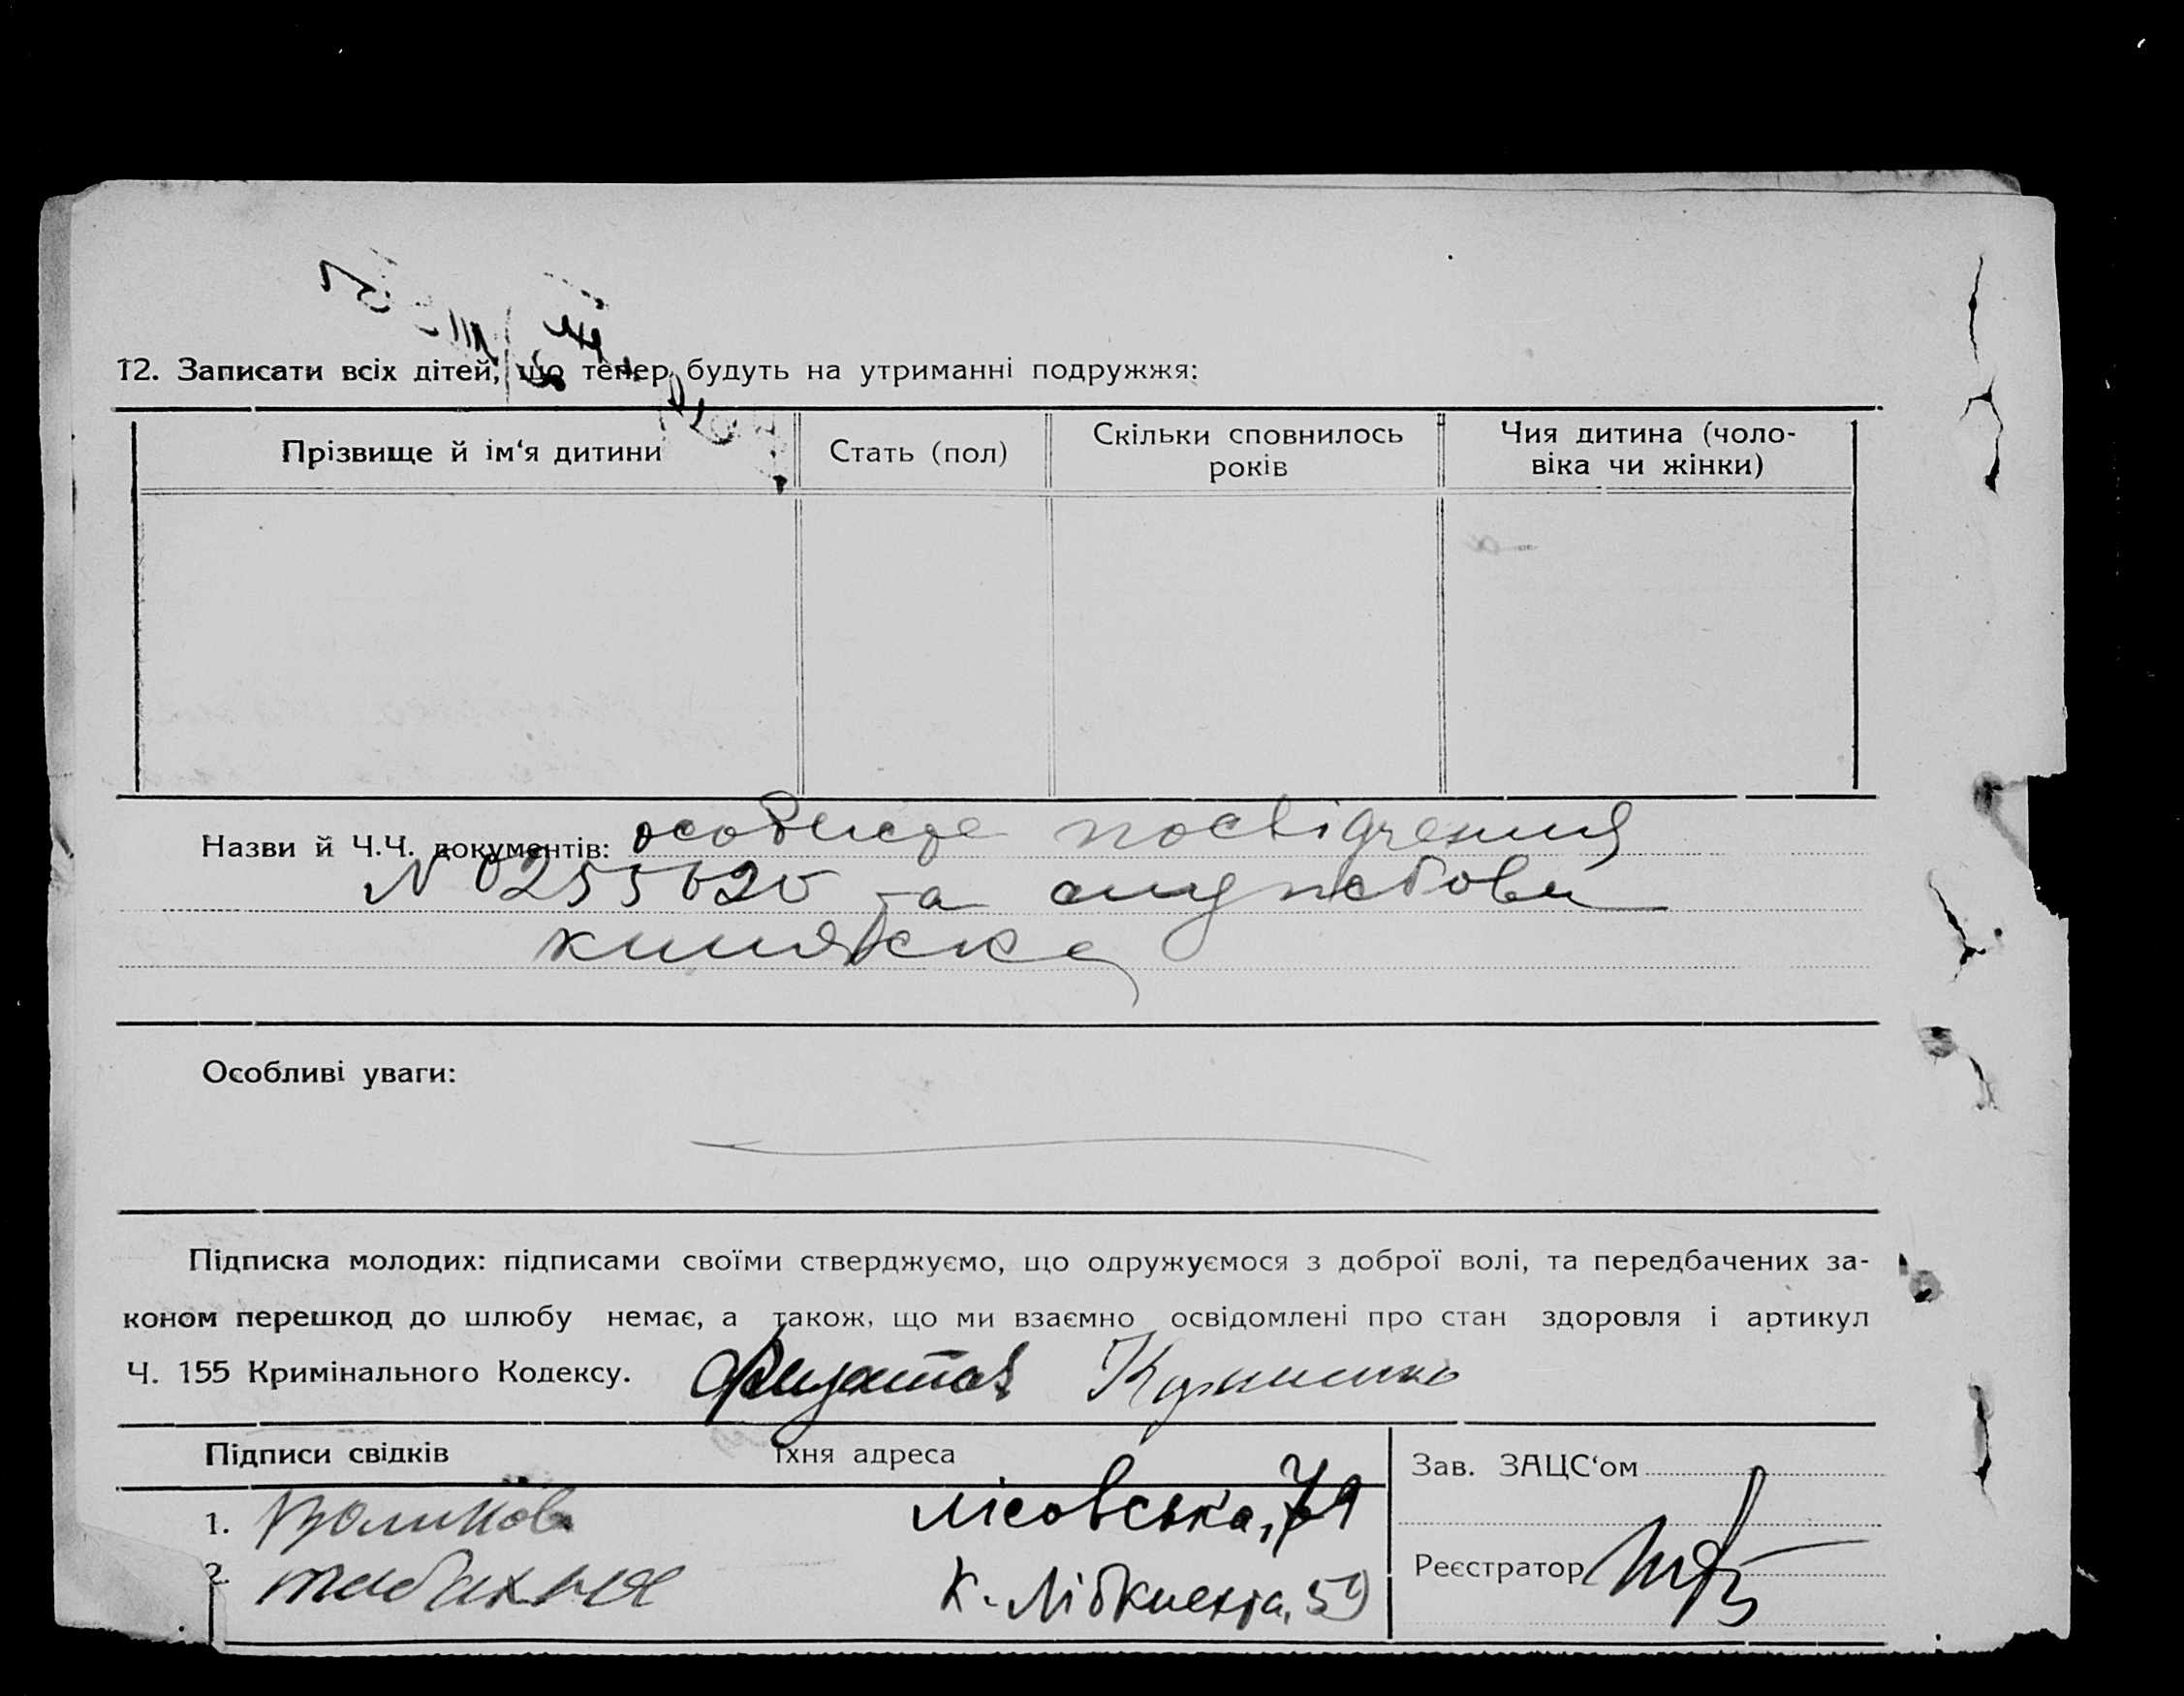 12. Записати всіх дітей, що тепер будуть на утриманні подружжя:
Прізвище й ім‘я дитини Стать (пол) Скільки сповнилось років Чия дитина (чоло-
віка чи жінки)
Назви й Ч.Ч. документів: особисте посвідчення
N 0255620 та службова
книжка
Особливі уваги:
Підписка молодих: підписами своїми стверджуємо, що одружуємося з доброї волі, та передбачених за-
коном перешкод до шлюбу немає, а також, що ми взаємно освідомлені про стан здоровля і артикул
Ч. 155 Кримінального Кодексу.
Підписи свідків їхня адреса Зав. ЗАЦС‘ом
1. Лісовська, 79
2. К. Лібкнехта, 59 Реєстратор